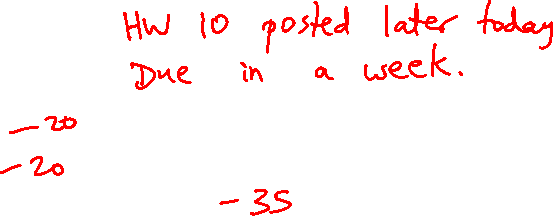 HW 10 posted later today
Due in a week.
-20
-20
-35